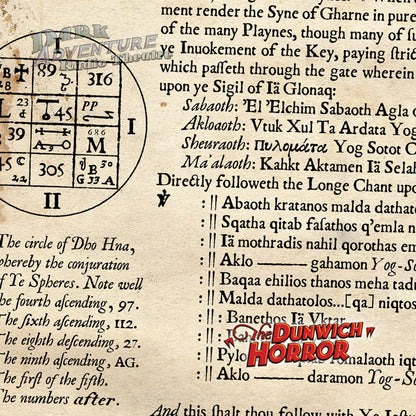 DARK
ADVENTURE
Radio Theatre
I
B
89
316
L
23
45
PP
I
39
686
M
45
305
B
G 33 A
II
The circle of Dho Hna,
whereby the conjuration
of Ye Spheres. Note well
The fourth aſcending, 97.
The ſixth aſcending, 112.
The eighth deſcending, 27.
The ninth aſcending, AG.
The firſt of the fifth.
The numbers after.
ment render the Syne of Gharne in pure
of the many Playnes, though many of
ye Inuokement of the Key, paying ſtri
which paſſeth through the gate wherein
upon ye Sigil of Iä Glonaq:
Sabaoth: 'El 'Elchim Sabaoth Agla
Akloaoth: Vtuk Xul Ta Ardata Yog
Sheuraoth: Πυλομάτα Yog Sotot
Ma'alaoth: Kahkt Aktamen Iä Selah
Directly followeth the Longe Chant
:|| Abaoth kratanos malda dathat
:|| Sqatha qitab faſathos q'emla
:|| Iä mothradis nahil qorothas em
:|| Aklo ——— gahamon Yog-
:|| Baqaa ehilios thanos meha tad
:|| Malda dathatolos...[qa] niqtos
:|| Banethos Iä Vktar
The
DUNWICH
HORROR
:|| Pylo Tomalaoth
:|| Aklo ——— daramon Yog-S
And this ſhalt thou follow with